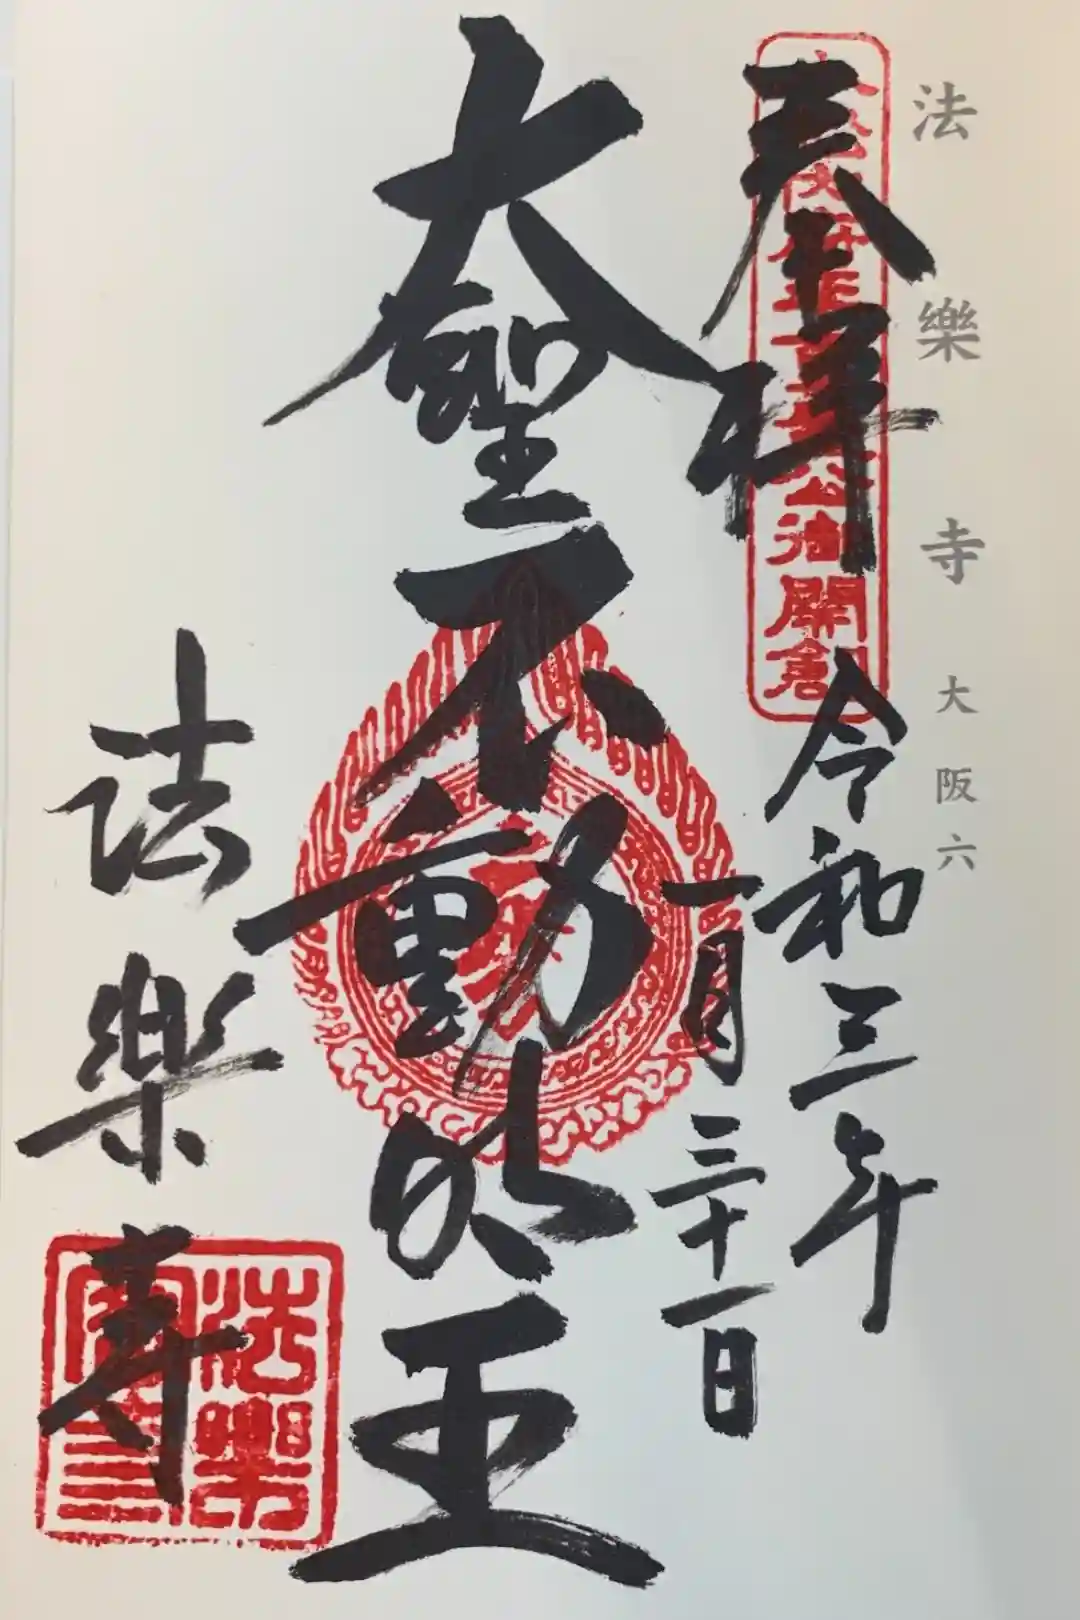 法樂寺 大阪六
公御開創
奉拝 令和三年
一月三十一日
大聖不動明王
法樂寺